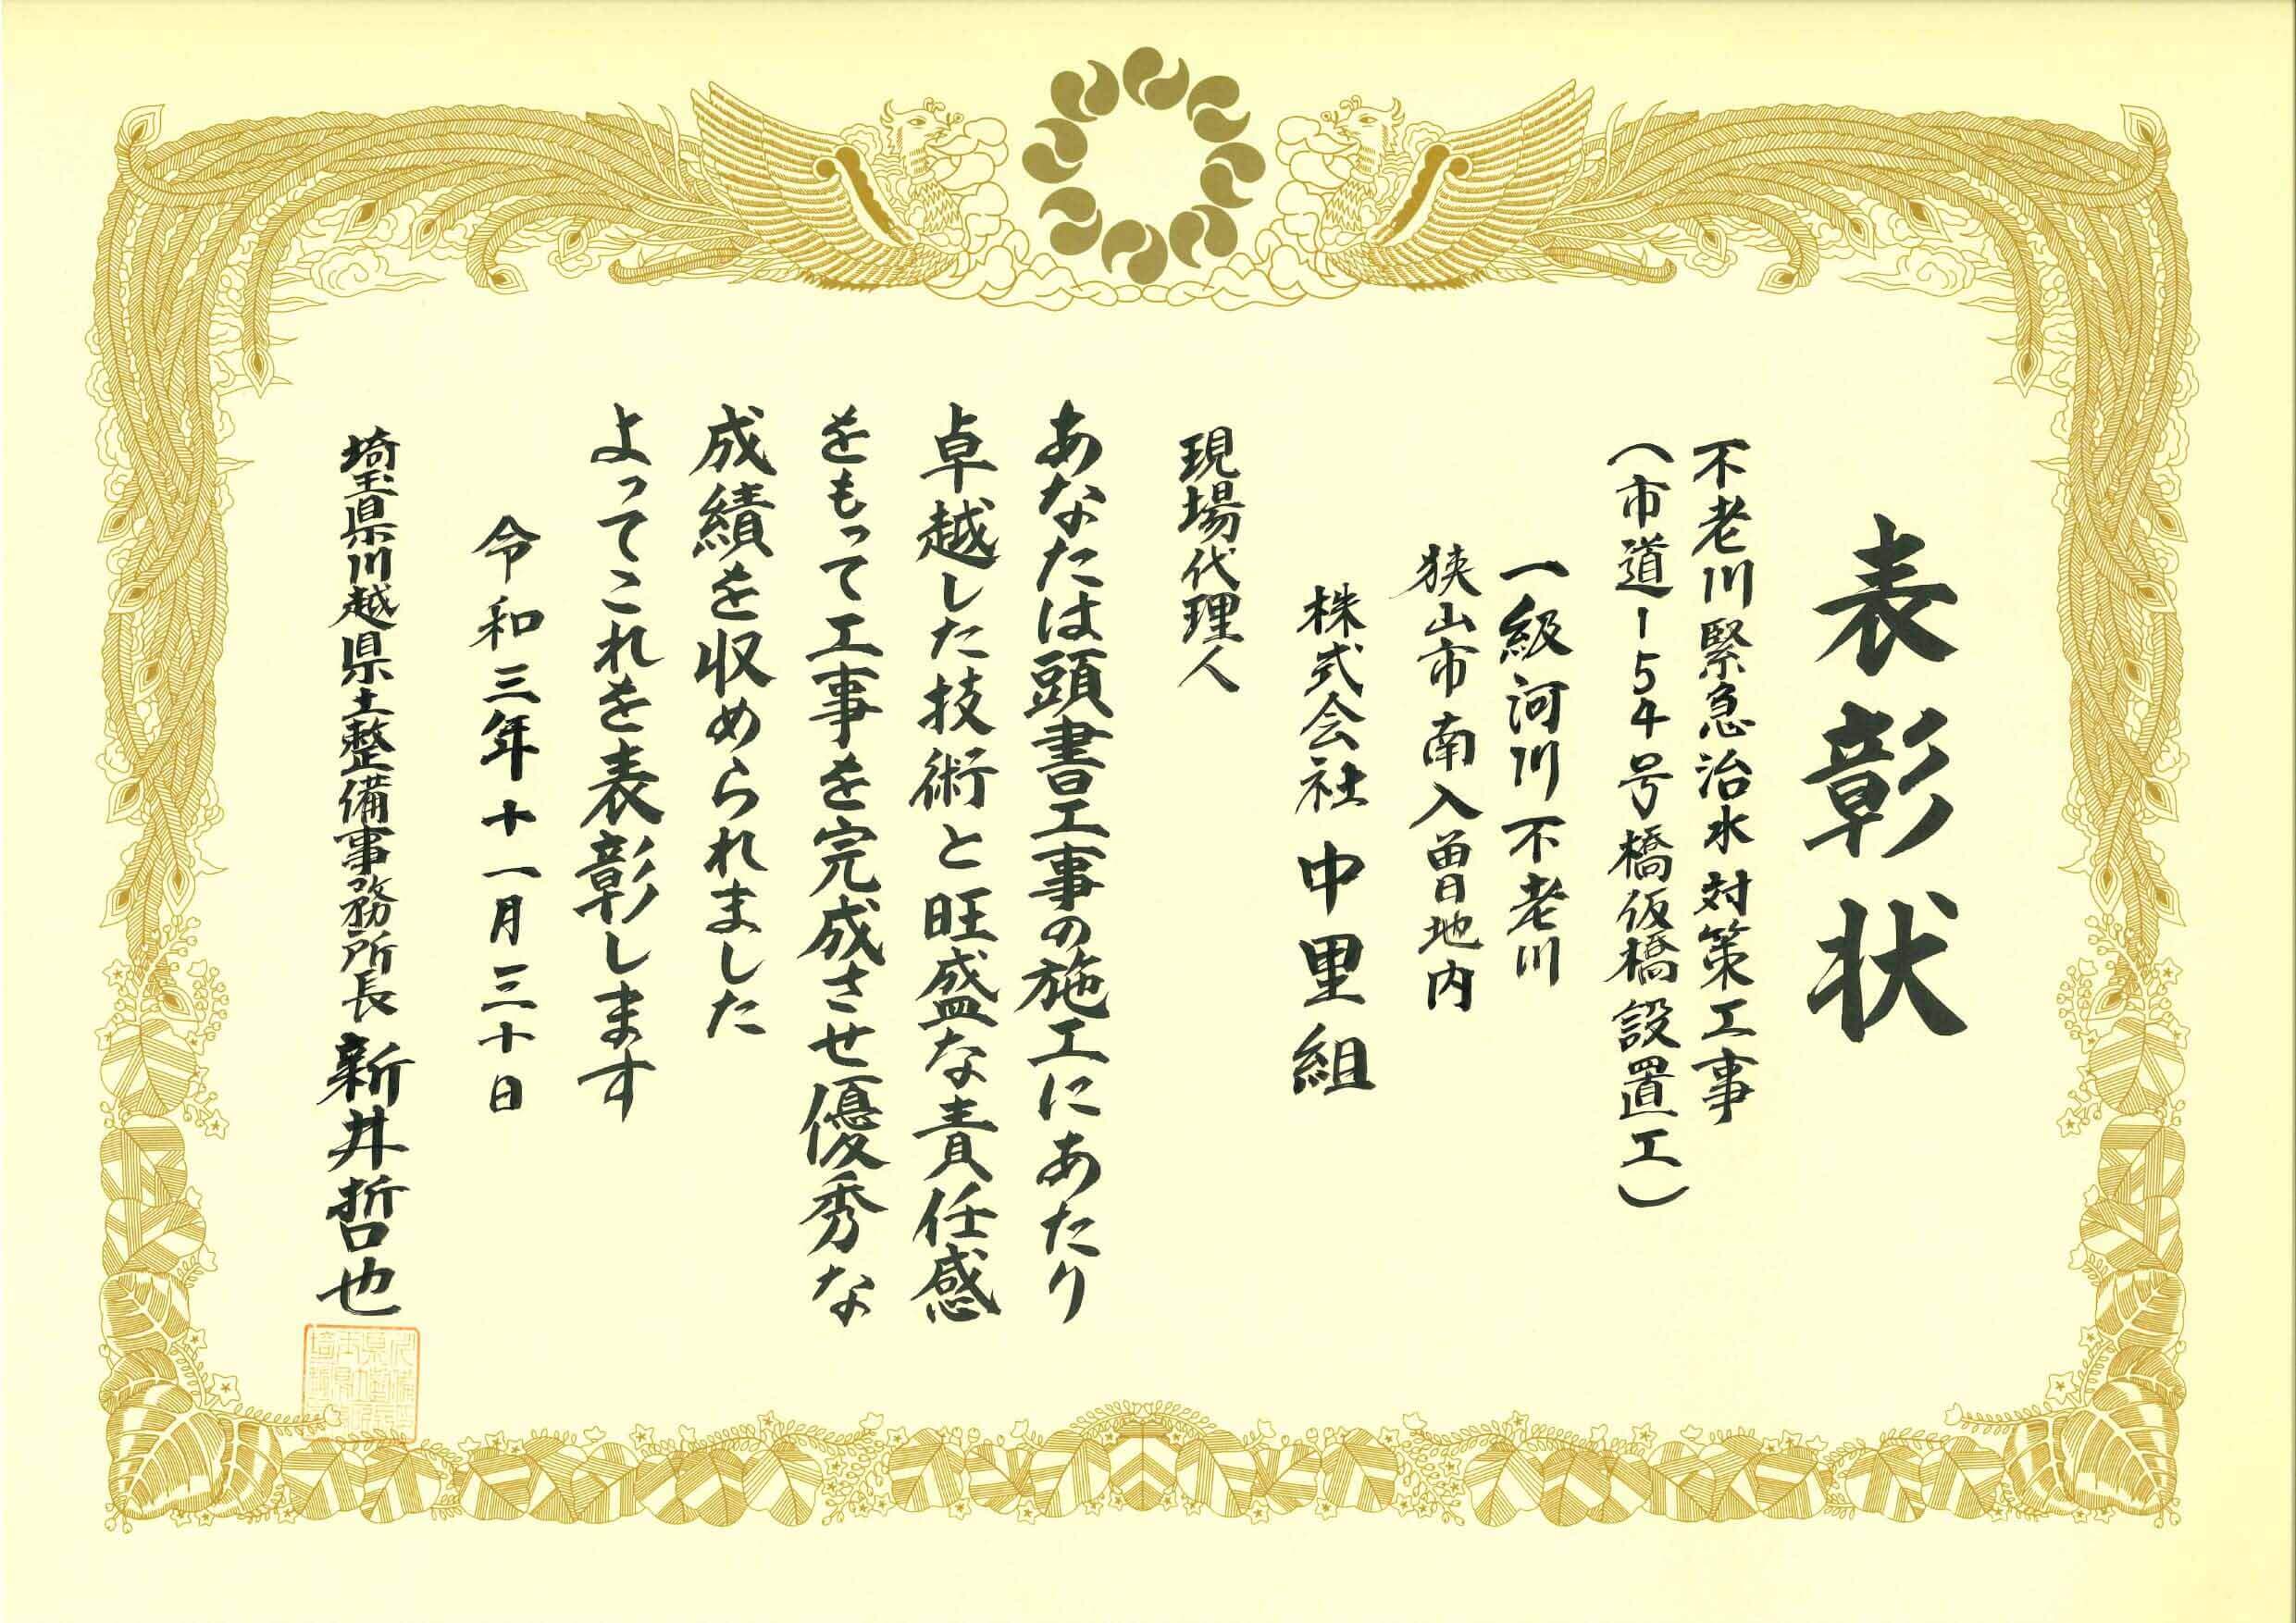 表彰状
不老川緊急治水対策工事
（市道1-54号橋仮橋設置工）
一級河川不老川
狭山市南入曽地内
株式会社中里組
現場代理人
あなたは頭書工事の施工にあたり
卓越した技術と旺盛な責任感
をもって工事を完成させ優秀な
成績を収められました
よってこれを表彰します
令和三年十一月三十日
埼玉県川越県土整備事務所長 新井哲也